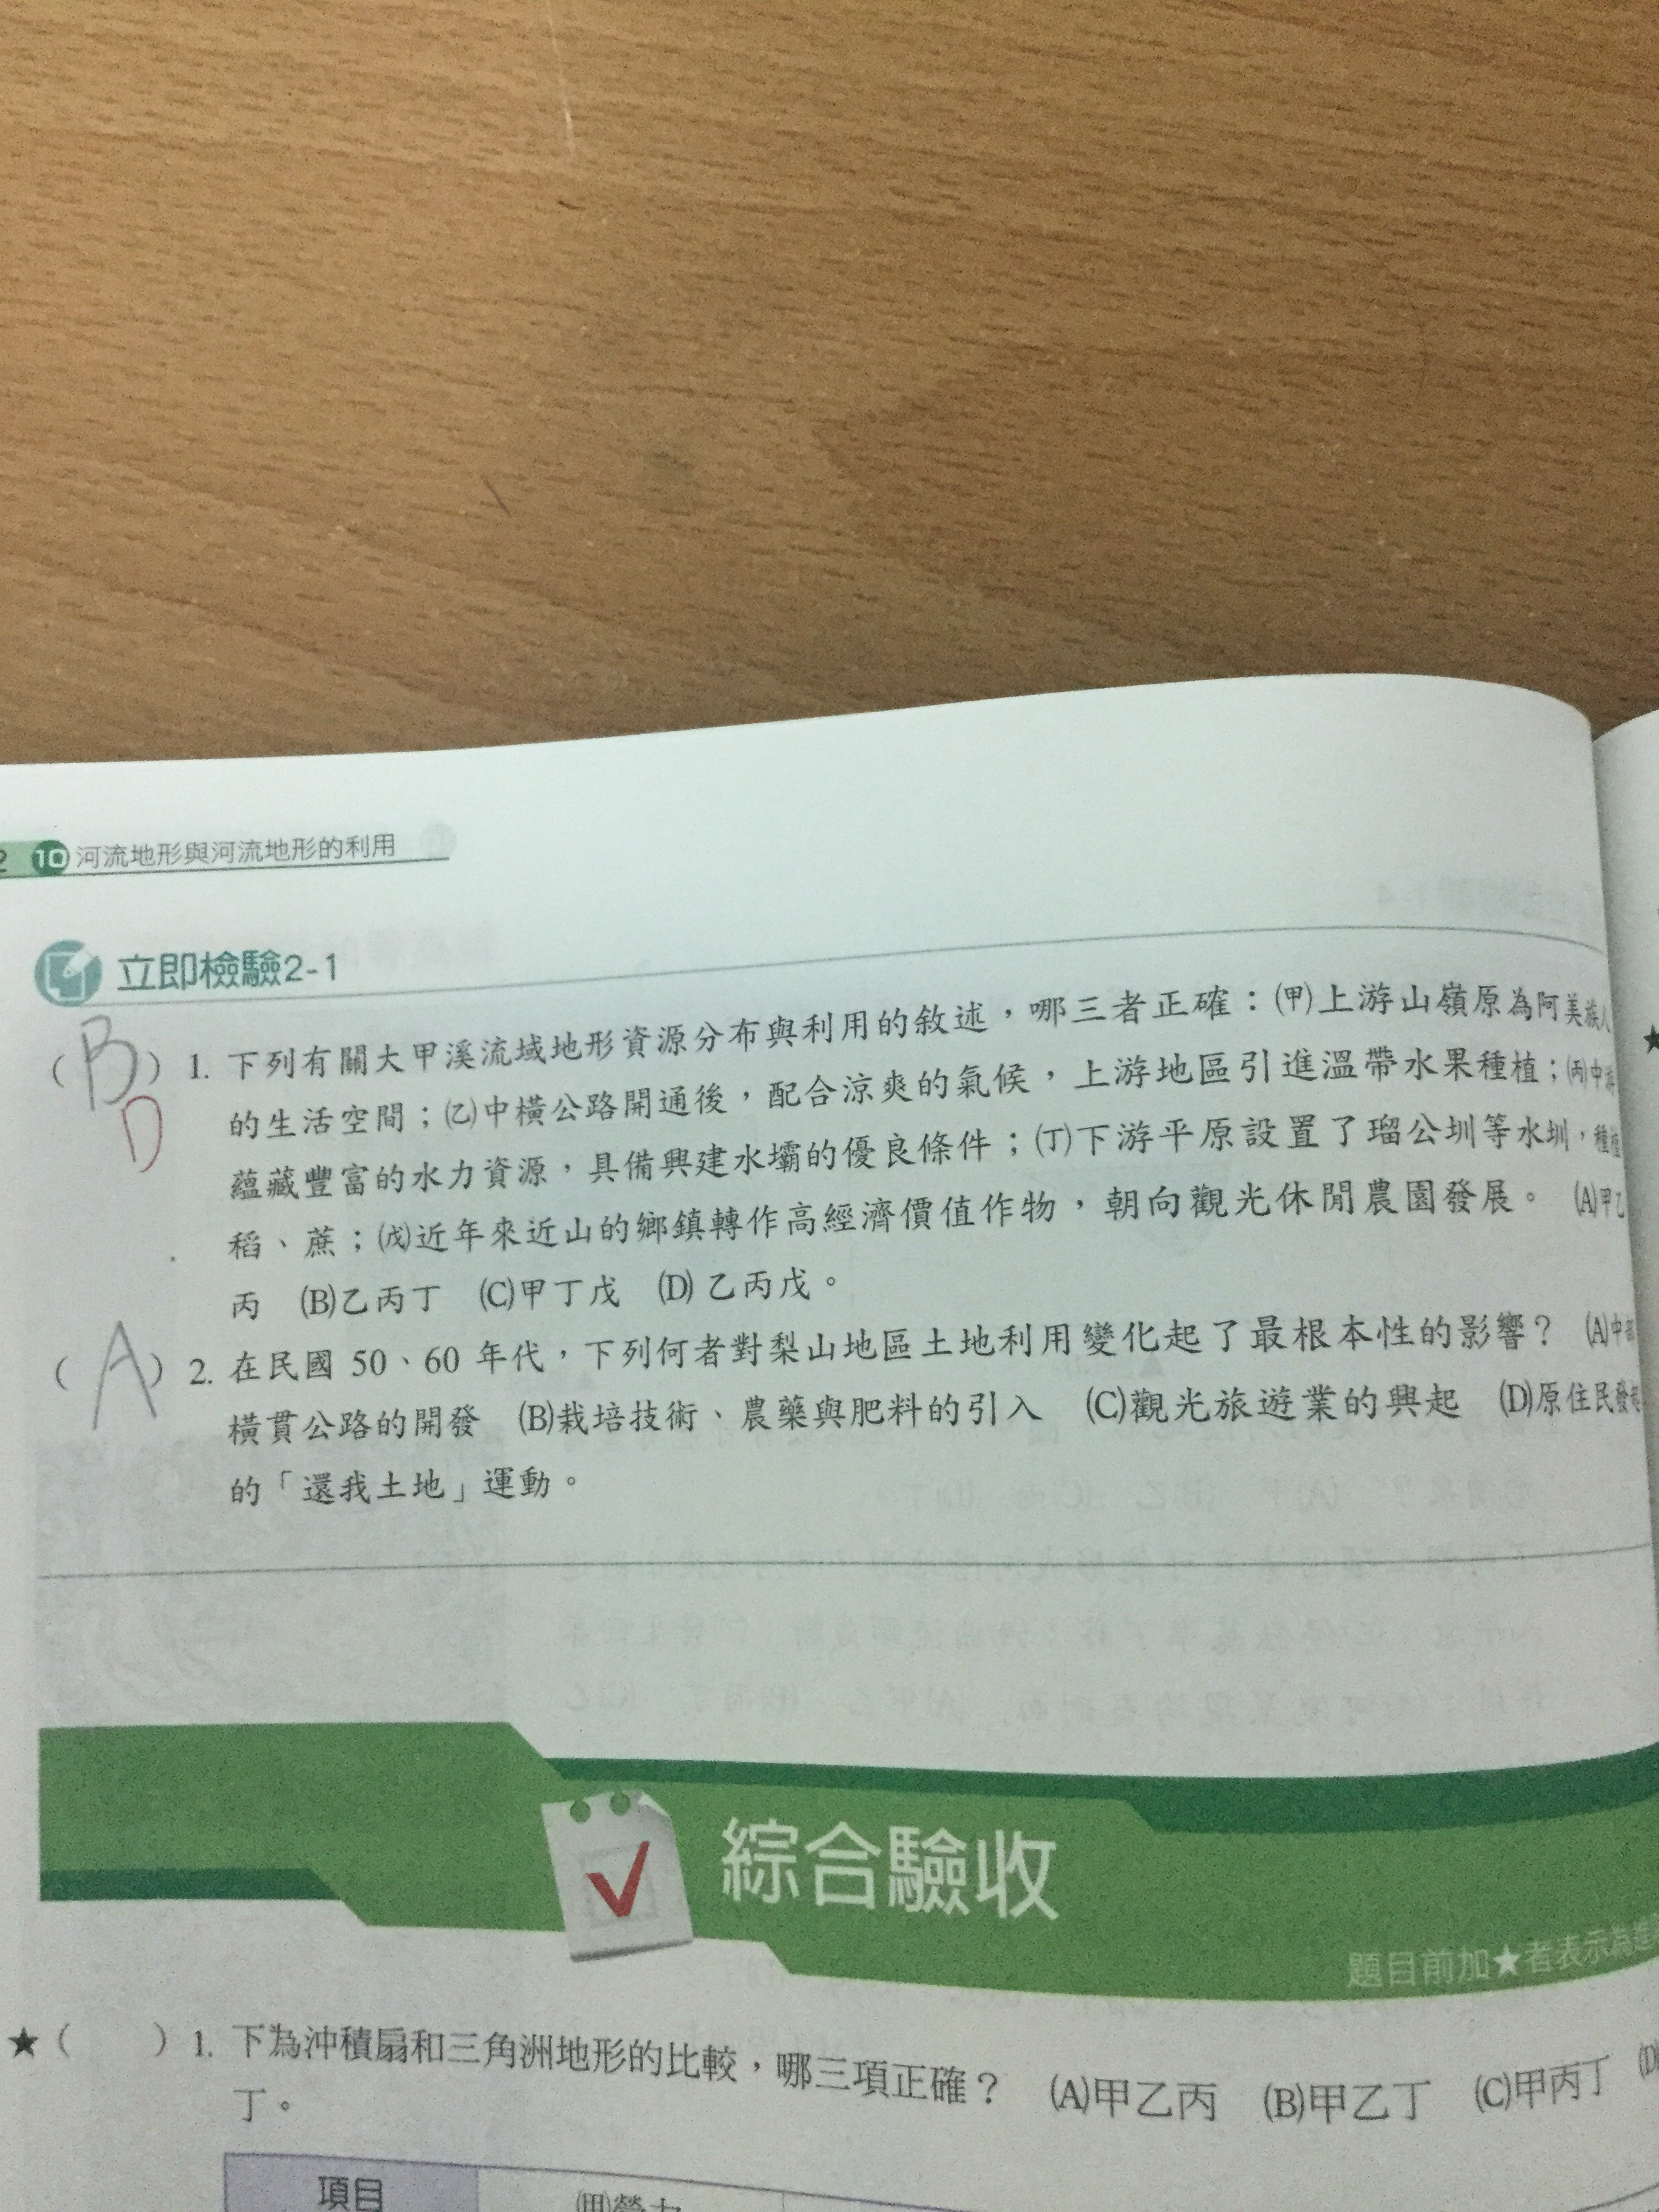 2 10 河流地形與河流地形的利用
立即檢驗2-1
(B) 1. 下列有關大甲溪流域地形資源分布與利用的敘述，哪三者正確：(甲)上游山嶺原為阿美族人
D
的生活空間；(乙)中橫公路開通後，配合涼爽的氣候，上游地區引進溫帶水果種植；(丙)中游
蘊藏豐富的水力資源，具備興建水壩的優良條件；(丁)下游平原設置了瑠公圳等水圳，種植
稻、蔗；(戊)近年來近山的鄉鎮轉作高經濟價值作物，朝向觀光休閒農園發展。 (A)甲乙
丙 (B)乙丙丁 (C)甲丁戊 (D)乙丙戊。
(A) 2. 在民國 50、60 年代，下列何者對梨山地區土地利用變化起了最根本性的影響？ (A)中部
橫貫公路的開發 (B)栽培技術、農藥與肥料的引入 (C)觀光旅遊業的興起 (D)原住民發起
的「還我土地」運動。
綜合驗收
題目前加★者表示為進
★( ) 1. 下為沖積扇和三角洲地形的比較，哪三項正確？ (A)甲乙丙 (B)甲乙丁 (C)甲丙丁 (D)
丁。
項目